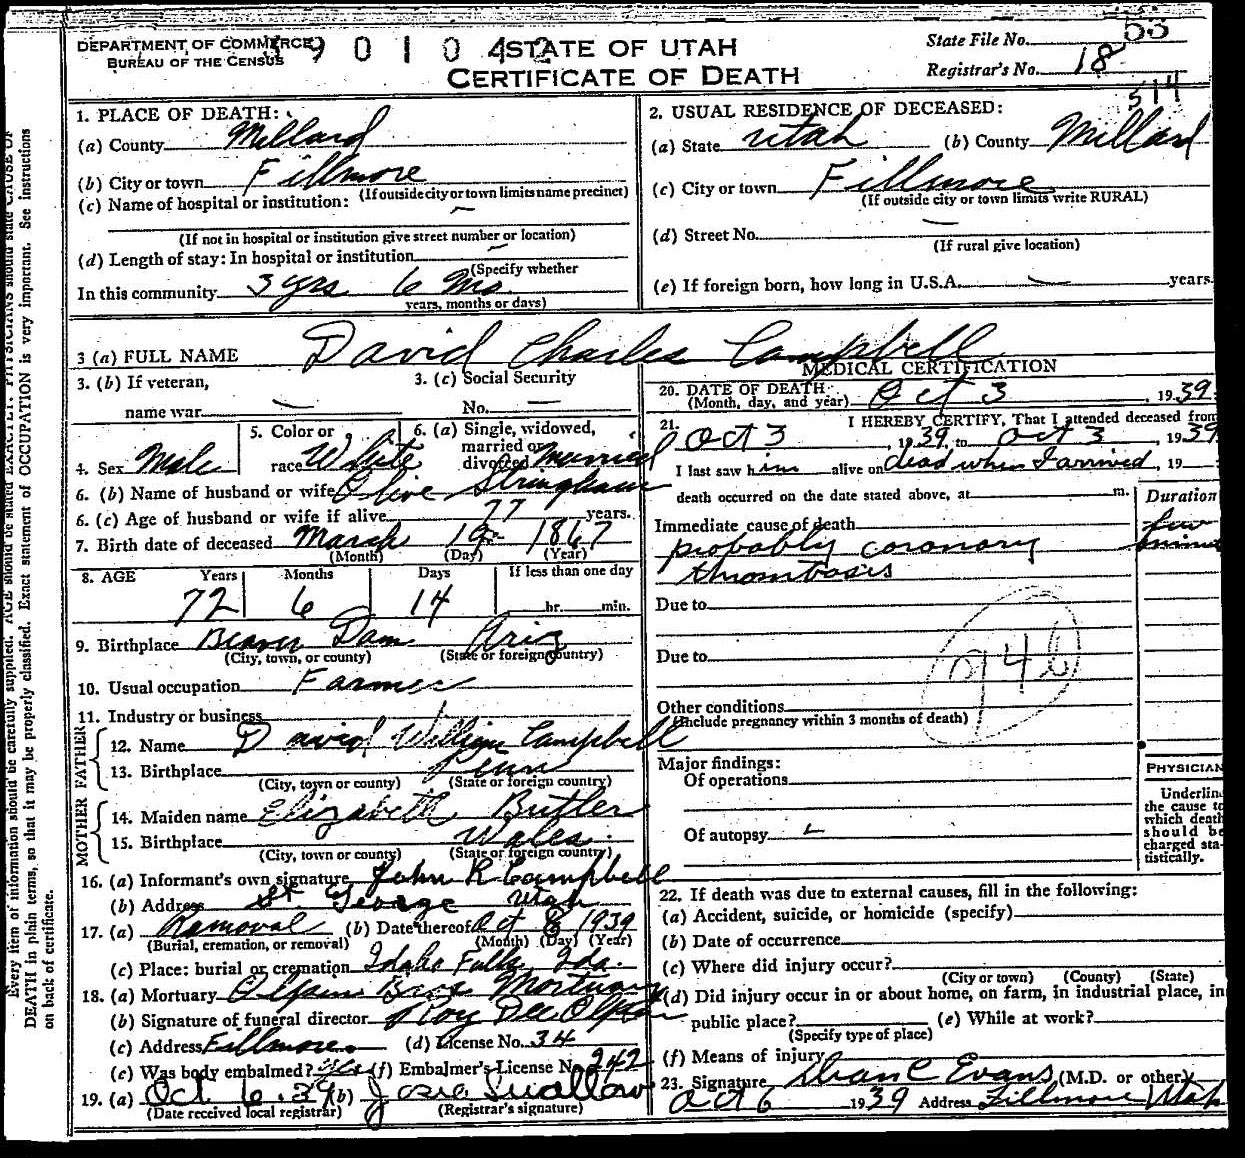 53
DEPARTMENT OF COMMERCE 9 0 1 0 4 2 STATE OF UTAH State File No.
BUREAU OF THE CENSUS CERTIFICATE OF DEATH Registrar's No. 18
514
1. PLACE OF DEATH:
(a) County Millard
(b) City or town Fillmore
(If outside city or town limits name precinct)
(c) Name of hospital or institution: –
(If not in hospital or institution give street number or location)
(d) Length of stay: In hospital or institution –
(Specify whether
In this community 3 yrs 6 Mo.
years, months or days)
2. USUAL RESIDENCE OF DECEASED:
(a) State Utah (b) County Millard
(c) City or town Fillmore
(If outside city or town limits write RURAL)
(d) Street No. –
(If rural give location)
(e) If foreign born, how long in U.S.A. – years.
3 (a) FULL NAME David Charles Campbell
3. (b) If veteran, 3. (c) Social Security
name war – No. –
5. Color or 6. (a) Single, widowed,
married or
4. Sex Male race White divorced Married
6. (b) Name of husband or wife Olive Stringham
6. (c) Age of husband or wife if alive 77 years.
7. Birth date of deceased March 19 1867
(Month) (Day) (Year)
8. AGE Years Months Days If less than one day
72 6 14 hr. min.
9. Birthplace Beaver Dam Ariz
(City, town, or county) (State or foreign country)
10. Usual occupation Farmer
11. Industry or business
FATHER
12. Name David William Campbell
13. Birthplace Penn
(City, town or county) (State or foreign country)
MOTHER
14. Maiden name Elizabeth Butler
15. Birthplace Wales.
(City, town or county) (State or foreign country)
16. (a) Informant's own signature John R Campbell
(b) Address St. George Utah
17. (a) Removal (b) Date thereof Oct 8 1939
(Burial, cremation, or removal) (Month) (Day) (Year)
(c) Place: burial or cremation Idaho Falls, Ida.
18. (a) Mortuary Olpin Bros Mortuary
(b) Signature of funeral director Roy Dee Olpin
(c) Address Fillmore (d) License No. 34
(e) Was body embalmed? yes (f) Embalmer's License No. 242
19. (a) Oct 6 - 39 (b) Josie Swallow
(Date received local registrar) (Registrar's signature)
MEDICAL CERTIFICATION
20. DATE OF DEATH:
(Month, day, and year) Oct 3, 1939
21. I HEREBY CERTIFY, That I attended deceased from
Oct 3, 1939, to Oct 3, 1939
I last saw him alive on dead when I arrived, 19
death occurred on the date stated above, at m. Duration
Immediate cause of death few
probably coronary
thrombosis
Due to
Due to
94b
Other conditions
(Include pregnancy within 3 months of death)
Major findings:
Of operations
Of autopsy
PHYSICIAN
Underline
the cause to
which death
should be
charged sta-
tistically.
22. If death was due to external causes, fill in the following:
(a) Accident, suicide, or homicide (specify)
(b) Date of occurrence
(c) Where did injury occur?
(City or town) (County) (State)
(d) Did injury occur in or about home, on farm, in industrial place, in
public place? (e) While at work?
(Specify type of place)
(f) Means of injury
23. Signature Dean C Evans (M.D. or other)
Oct 6 1939 Address Fillmore Utah
Every item of information should be carefully supplied. AGE should be stated EXACTLY. PHYSICIANS should state CAUSE OF
DEATH in plain terms, so that it may be properly classified. Exact statement of OCCUPATION is very important. See instructions
on back of certificate.